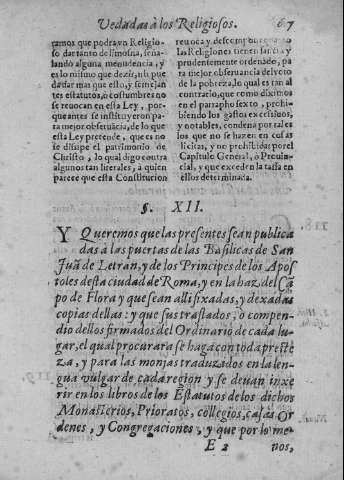 Vedadas à los Religiosos. 67
ramos que podrà vn Religio-
so dar tanto de limosna, seña-
lando alguna menudencia, y
es lo mismo que dezir, no pue
da dar mas que esto, y semejan
tes estatutos, ò costumbres no
se reuocan en esta Ley, por-
que antes se instituyeron pa-
ra mejor obseruãcia, de lo que
esta Ley pretende, que es no
se disipe el patrimonio de
Christo, lo qual digo contra
algunos tan literales, à quien
parece que esta Constitucion
reuoca y
las Religiones tienen sancta y
prudentemente ordenado, pa
ra mejor obseruancia del voto
de la pobreza, lo qual es tan al
contrario, que como diximos
en el parrapho sexto, prohi-
biendo los gastos excessiuos,
y notables, condena por tales
los que no se hazen en cosas
licitas, y no prohibidas por el
Capitulo General, ò Prouin-
cial, y que exceden la tassa en
ellos determinada.
§. XII.
Y Queremos que las presentes sean publica
das à las puertas de las Basilicas de San
Juã de Letran, y de los Principes de los Apos
toles desta ciudad de Roma, y en la haz del Cã
po de Flora y que sean alli fixadas, y dexadas
copias dellas: y que sus traslados, ò compen
dio dellos firmados del Ordinario de cada lu-
gar, el qual procurara se haga con toda preste
za, y para las monjas traduzidos en la len-
gua vulgar de cada region y se deuan inxe
rir en los libros de los Estatutos de los dichos
Monasterios, Prioratos, collegios, casas Or
denes, y Congregaciones, y que por lo me-
E 2 nos,